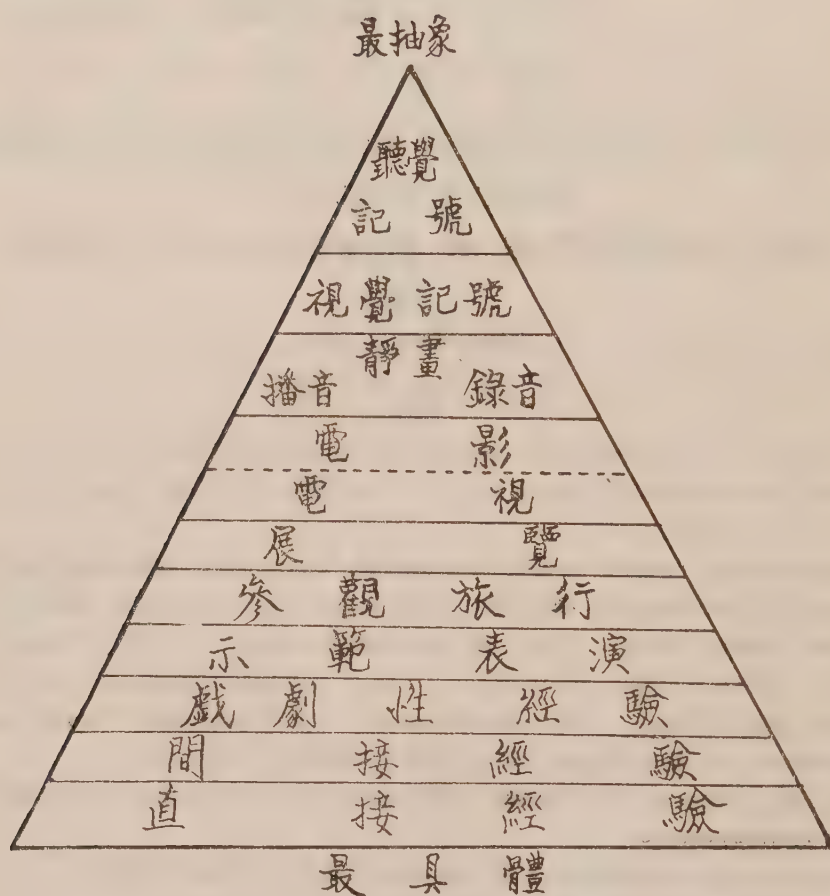 最抽象
聽覺
記號
視覺記號
靜畫
播音 錄音
電影
電視
展覽
參觀旅行
示範表演
戲劇性經驗
間接經驗
直接經驗
最具體